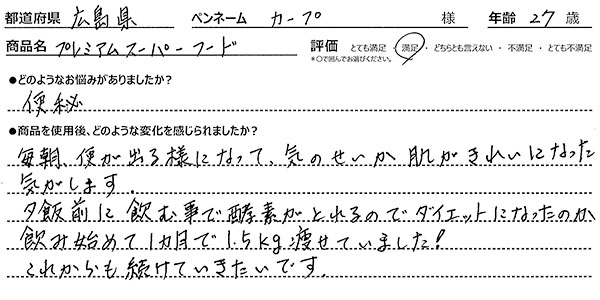 都道府県 広島県 ペンネーム カープ 様 年齢 27 歳
商品名 プレミアムスーパーフード 評価 とても満足・満足・どちらとも言えない・不満足・とても不満足
*○で囲んでお選びください。
●どのようなお悩みがありましたか?
便秘
●商品を使用後、どのような変化を感じられましたか?
毎朝、便が出る様になって、気のせいか 肌がきれいになった
気がします.
夕飯前に飲む事で酵素がとれるのでダイエットになったのか
飲み始めて1カ月で1.5kg痩せていました!
これからも続けていきたいです.